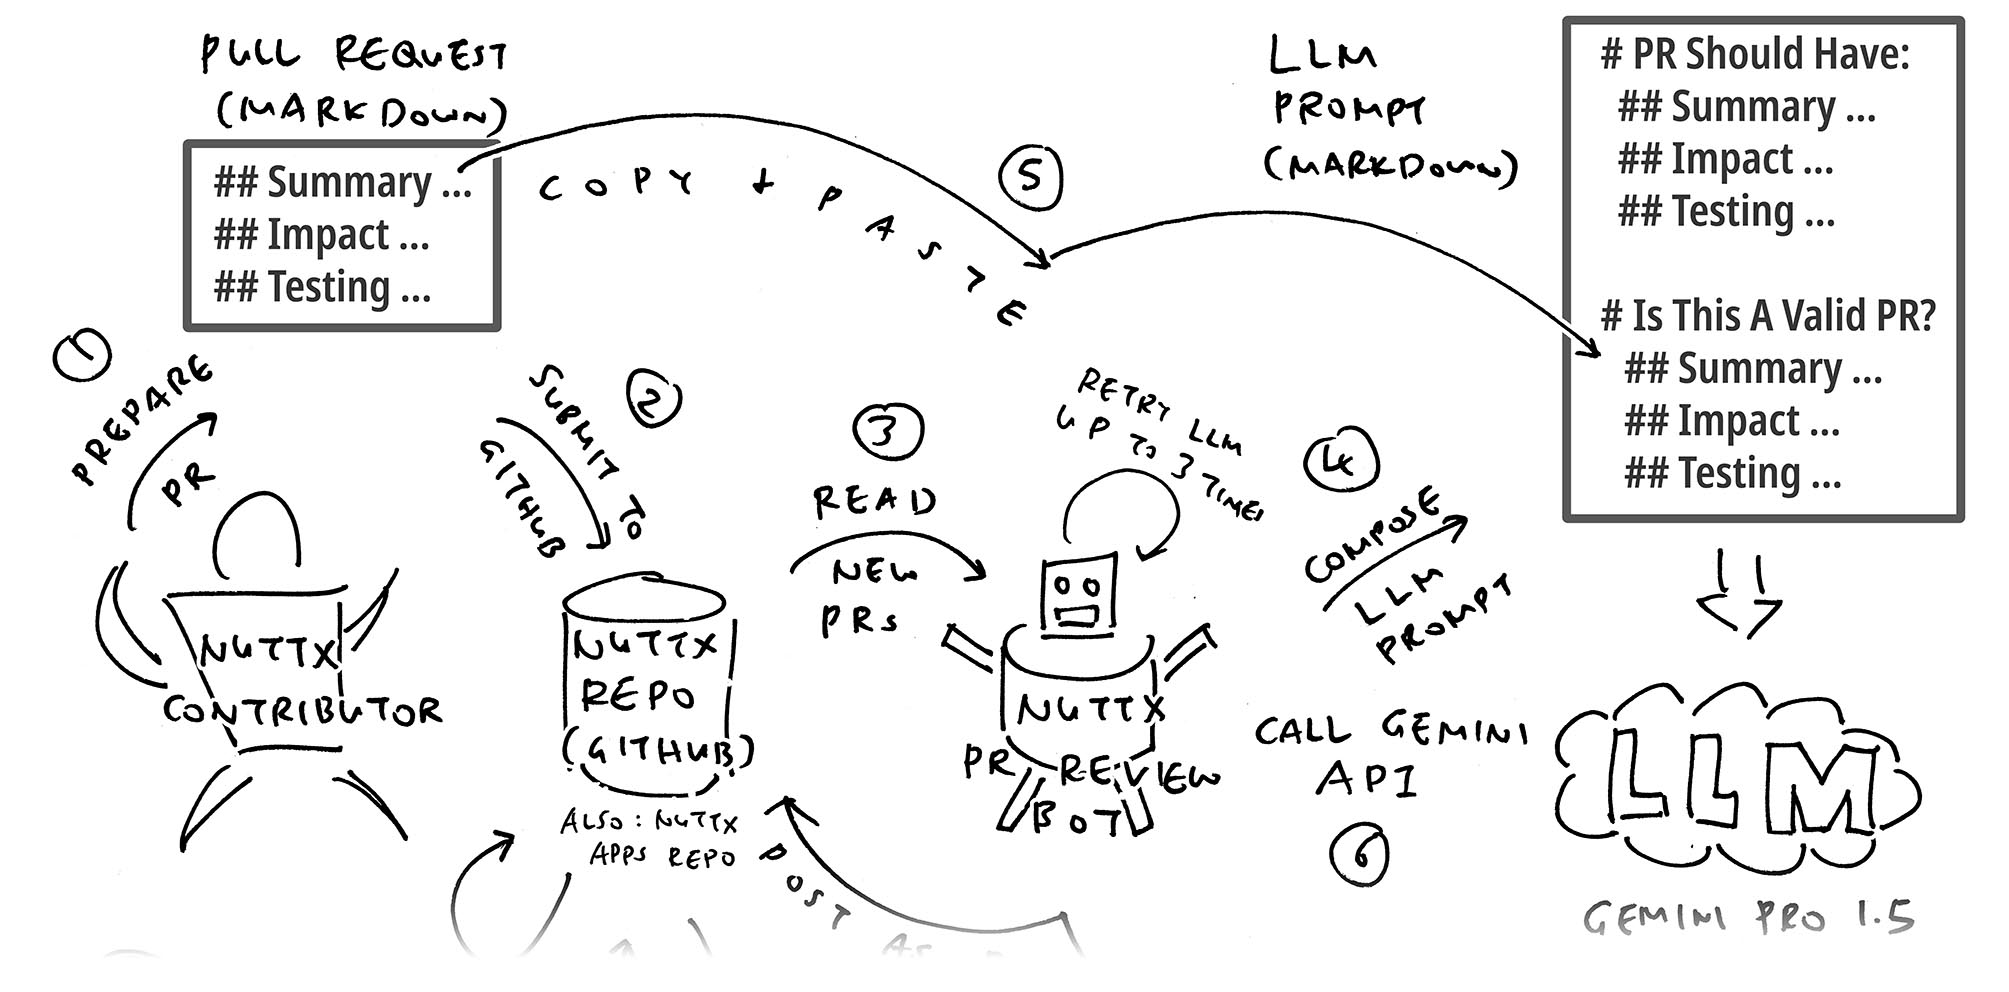 PULL REQUEST
(MARKDOWN)
## Summary ...
## Impact ...
## Testing ...
COPY + PASTE
5
LLM
PROMPT
(MARKDOWN)
# PR Should Have:
## Summary ...
## Impact ...
## Testing ...
# Is This A Valid PR?
## Summary ...
## Impact ...
## Testing ...
1
PREPARE
PR
NUTTX
CONTRIBUTOR
2
SUBMIT TO
GITHUB
NUTTX
REPO
(GITHUB)
ALSO: NUTTX
APPS REPO
3
READ
NEW
PRs
RETRY LLM
UP TO 3 TIMES
NUTTX
PR REVIEW
BOT
4
COMPOSE
LLM
PROMPT
CALL GEMINI
API
6
LLM
GEMINI PRO 1.5
POST